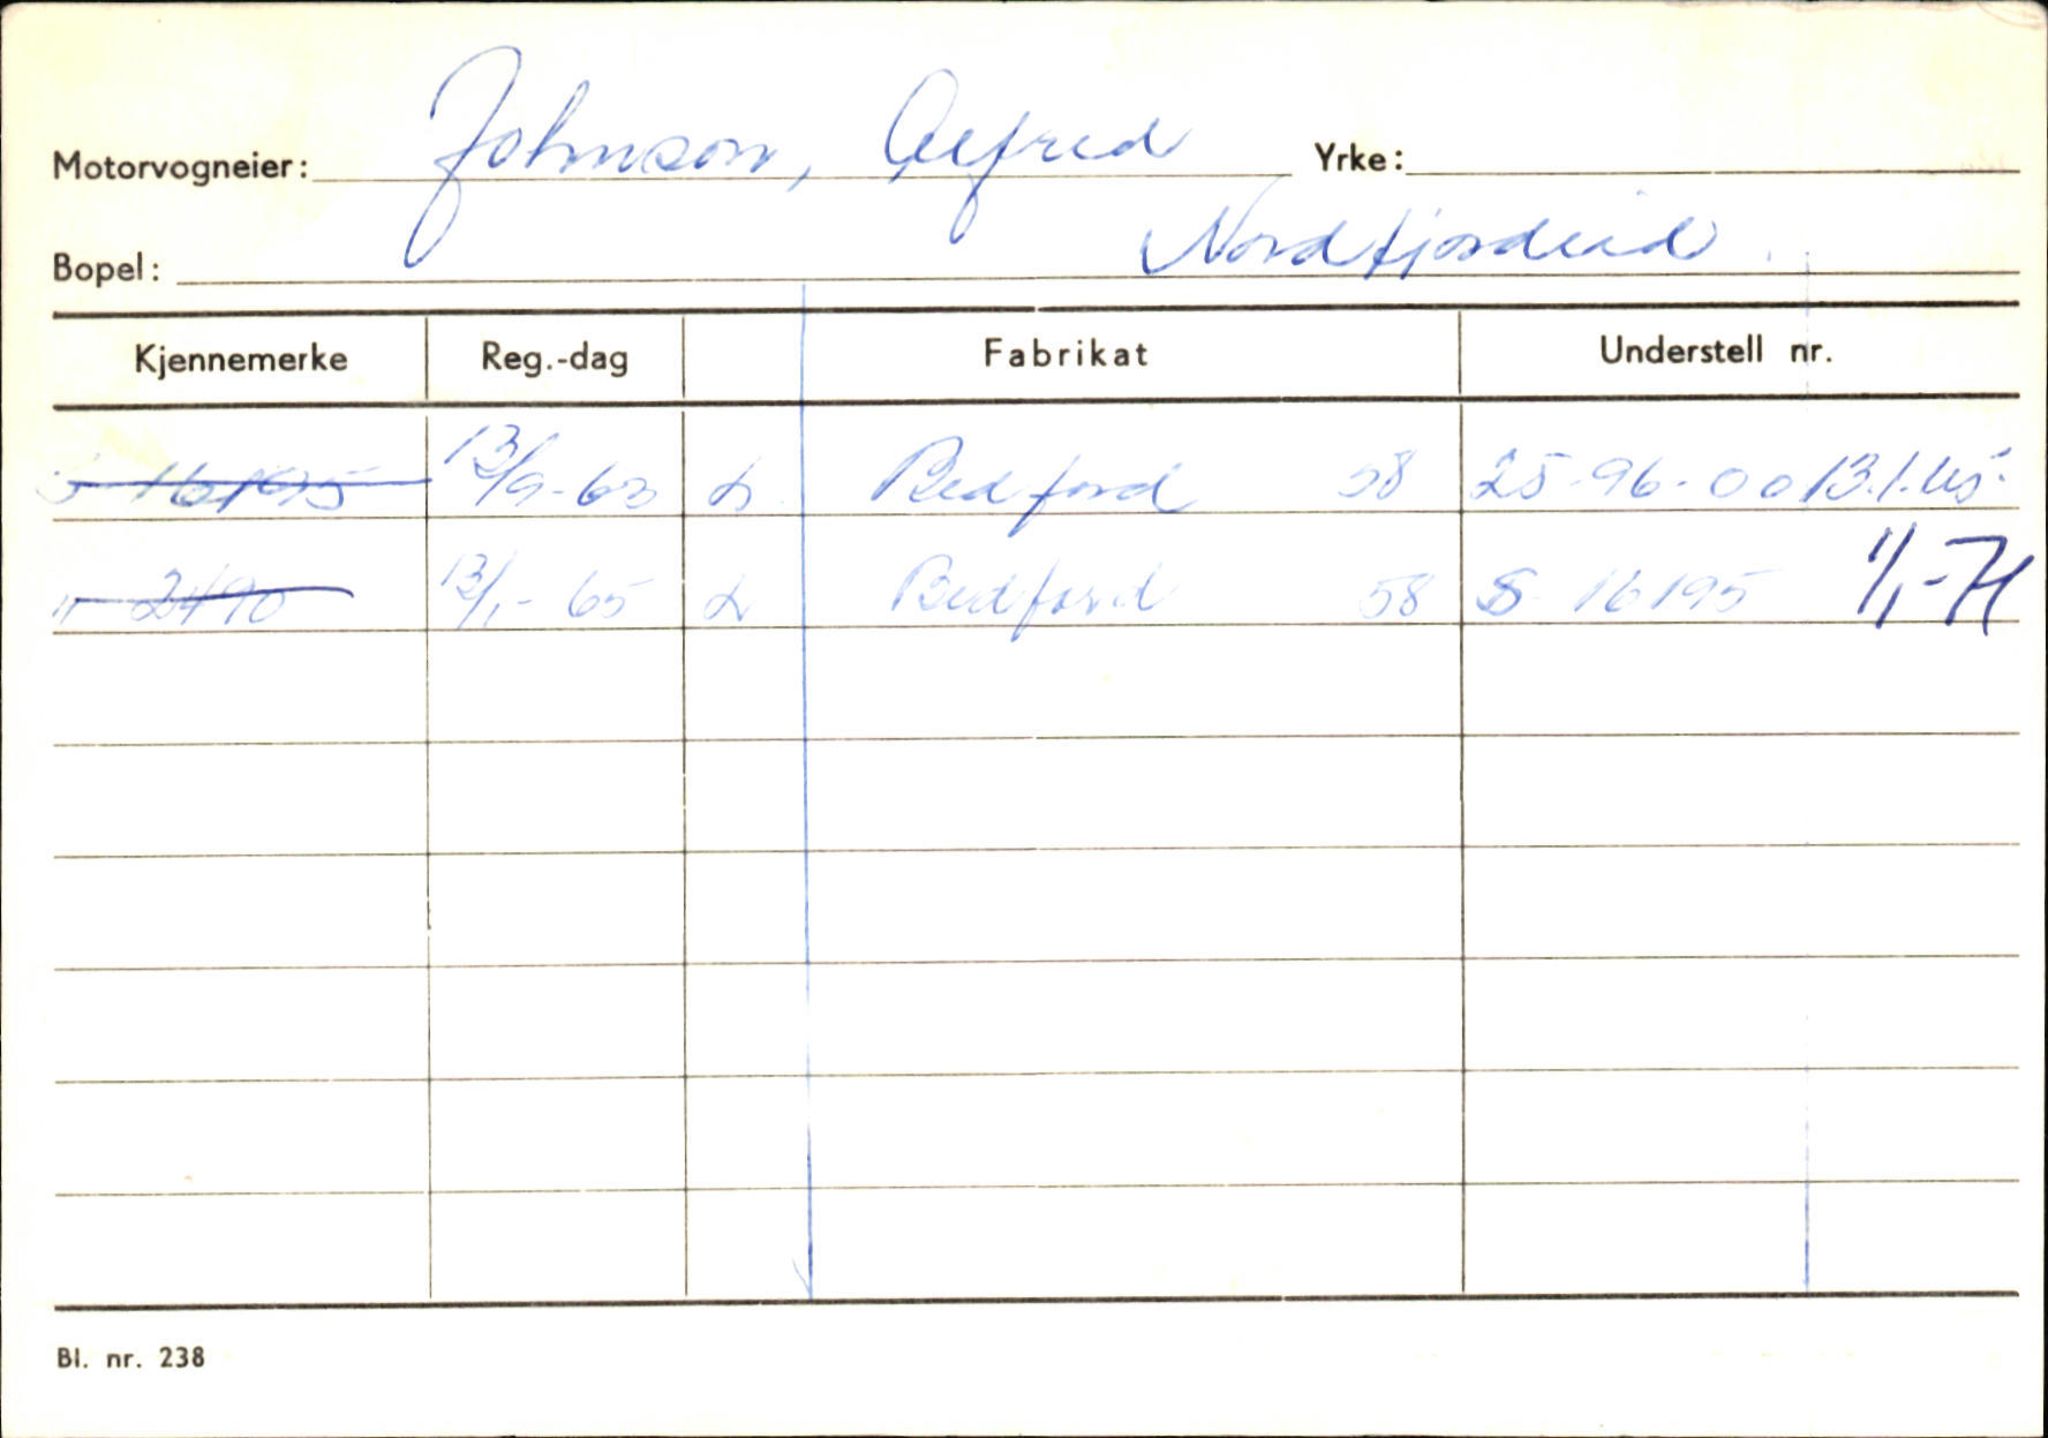 Motorvogneier: Johnson, Alfred Yrke:
Bopel: Nordfjordeid
Kjennemerke Reg.-dag Fabrikat Understell nr.
S 16195 13/9-63 L Bedford 58 25-96-00 13.1.65.
" 2490 13/1-65 L Bedford 58 S-16195 1/1-71
Bl. nr. 238